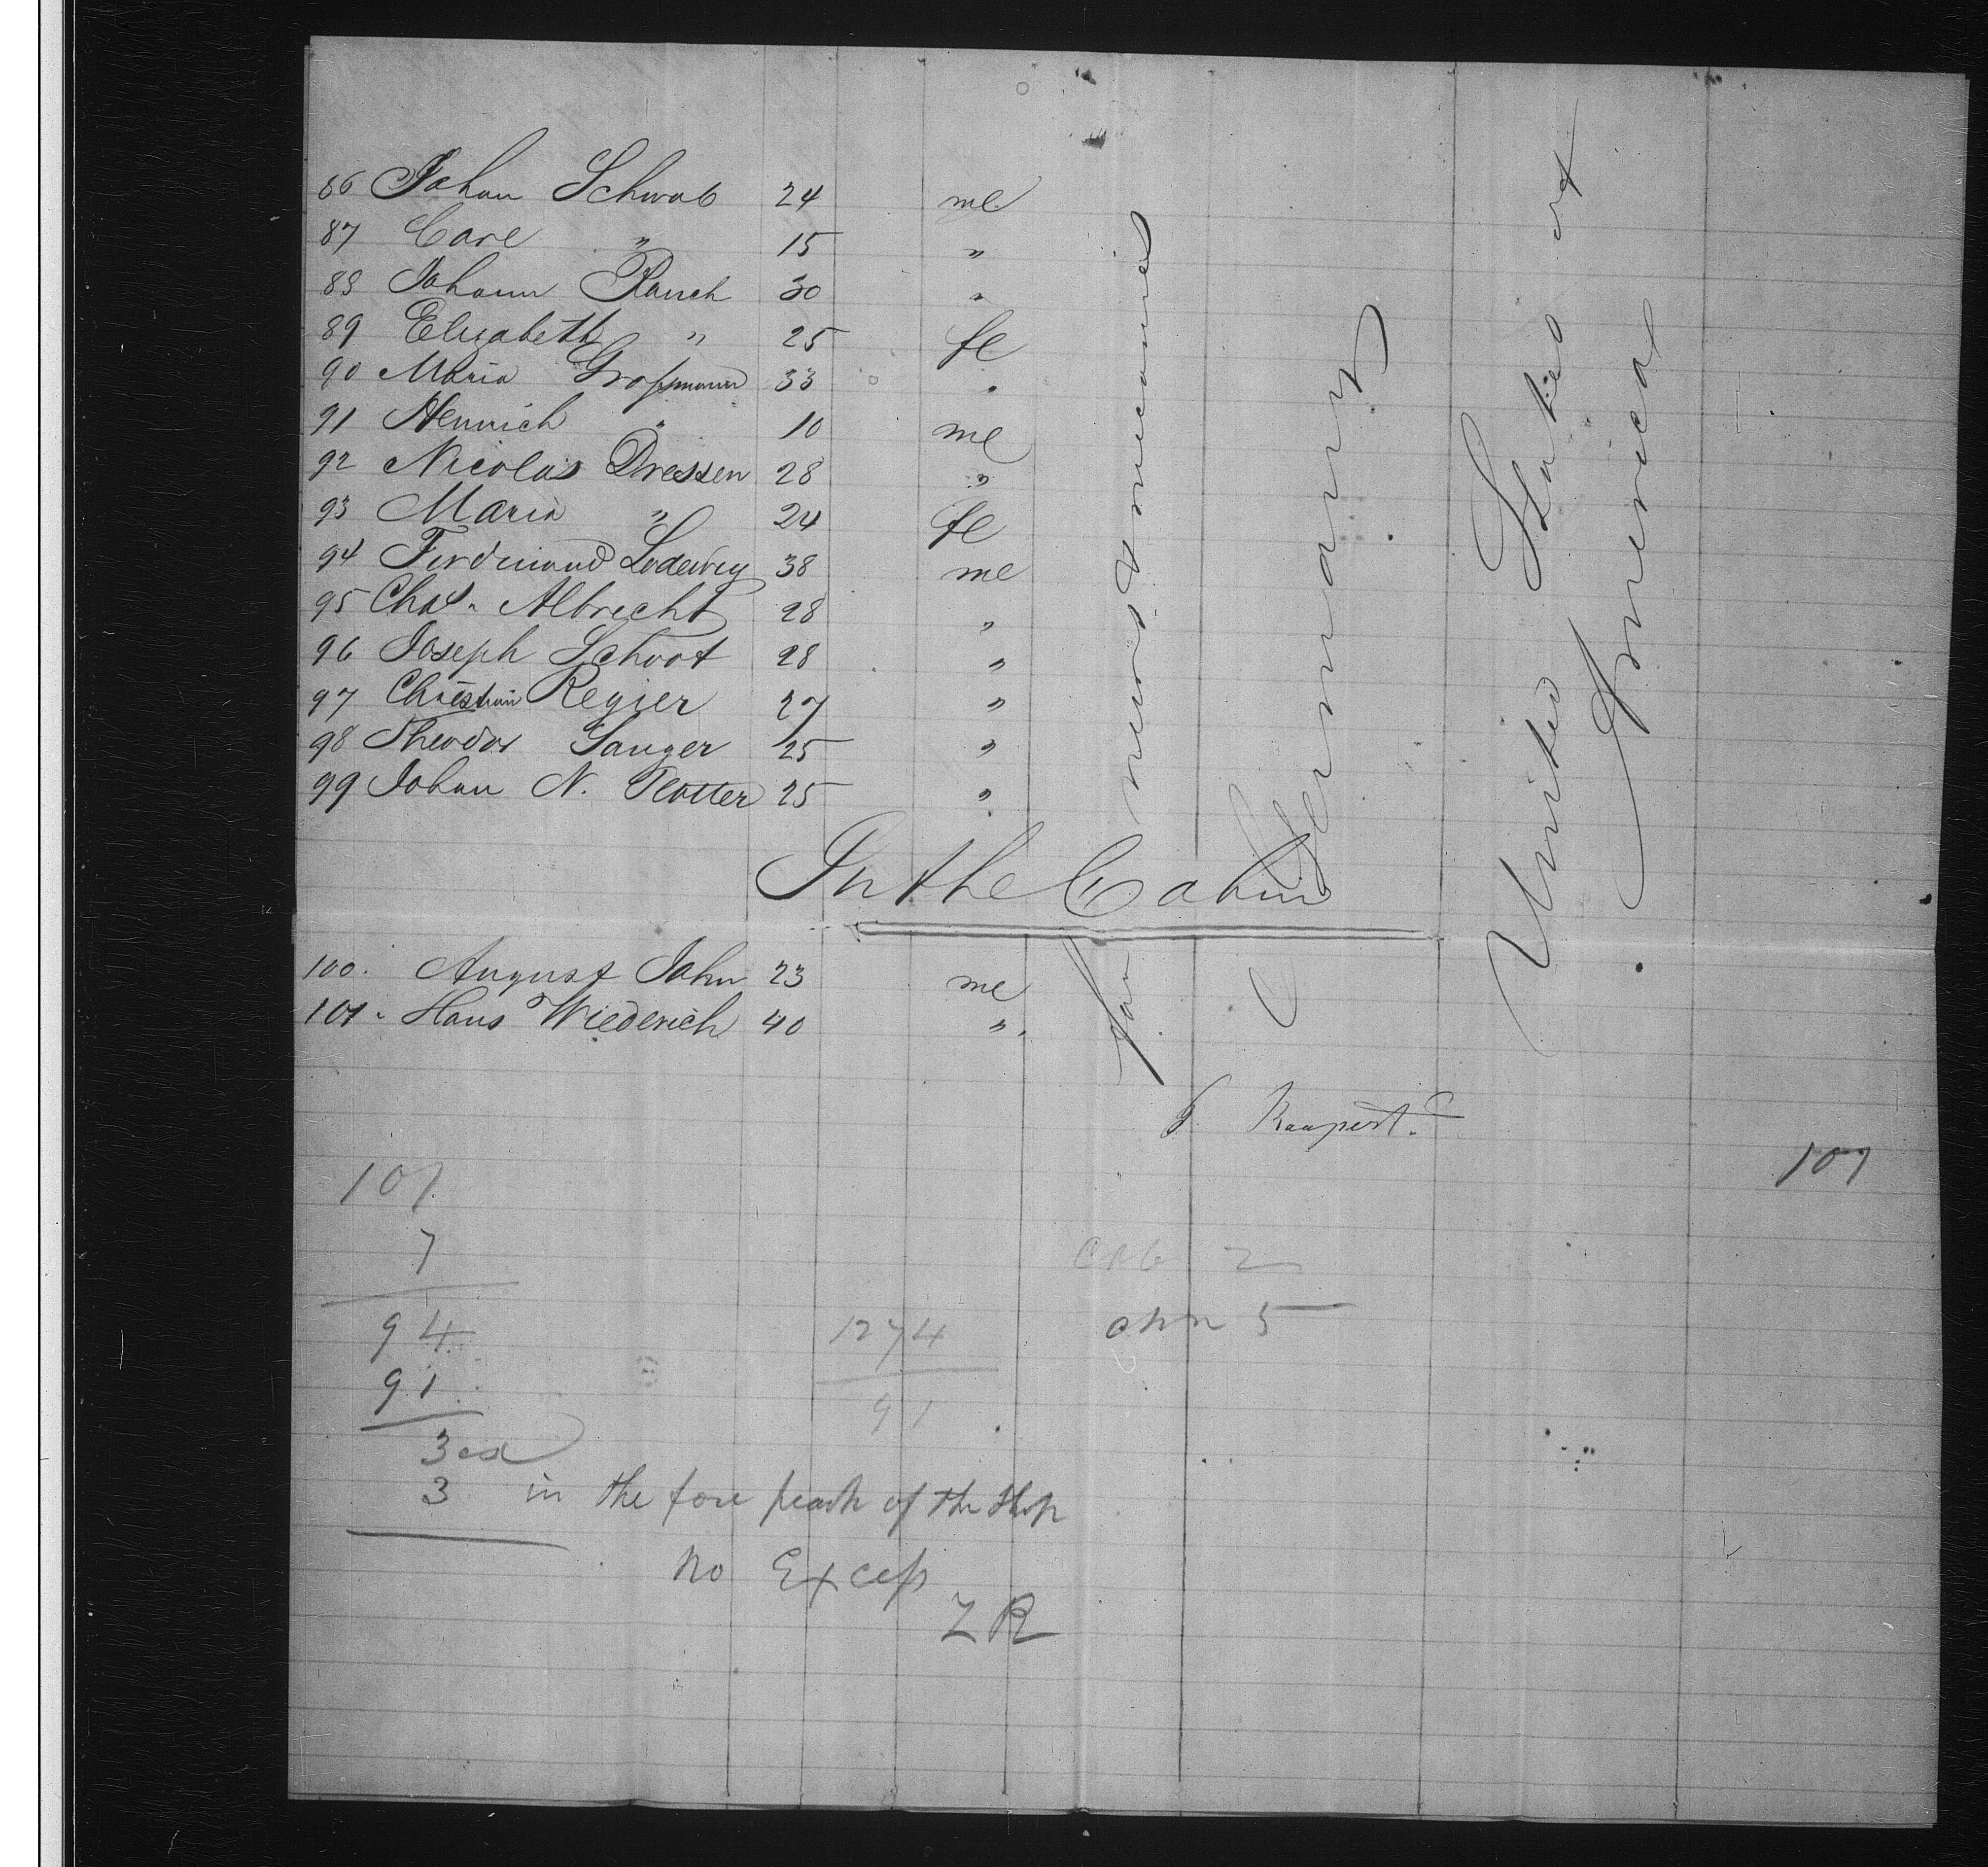 86 Johan Schwab 24 me
87 Carl " 15 "
88 Johann Rauch 30 "
89 Elizabeth " 25 fe
90 Maria Großmann 33 "
91 Heinrich " 10 me
92 Nicolas Dressen 28 "
93 Maria " 24 fe
94 Ferdinand Lodewig 38 me
95 Chas. Albrecht 28 "
96 Joseph Schoot 28 "
97 Christian Regier 27 "
98 Theodor Sanger 25 "
99 Johan N. Platter 25 "
In the Cabin
100. August Jahn 23 me
101. Hans Wiederich 40 "
far mers & mecanics
Germany
United States of
America.
Raupert.
101
101
7
94
91
3
3 in the fore peak of the Ship
1274
91
cab 2
chn 5
no Excess
ZR